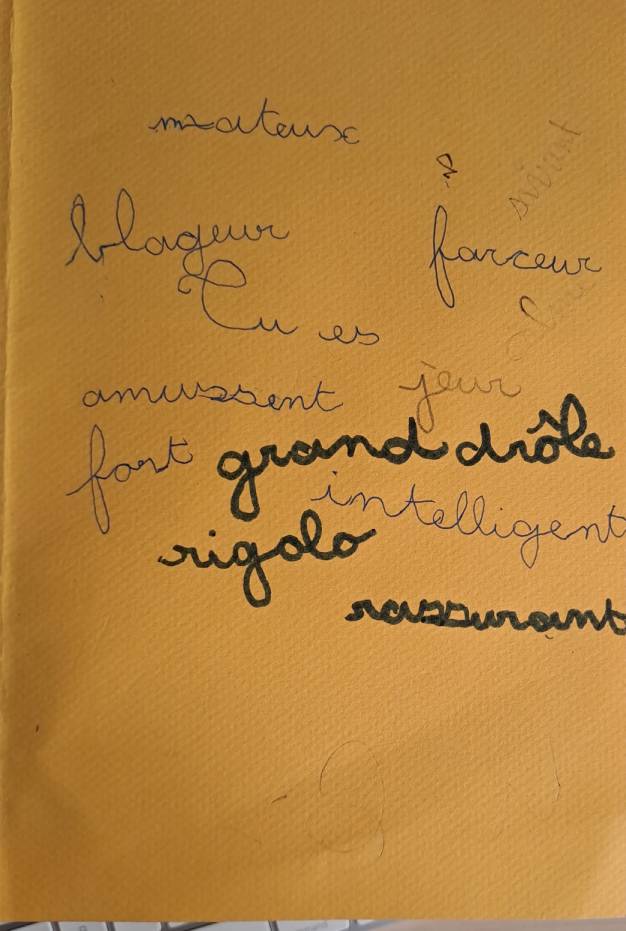 blagueur
farceur
Tu es
amussent jeur
fort grand drôle
intelligent
rigolo
rassurant